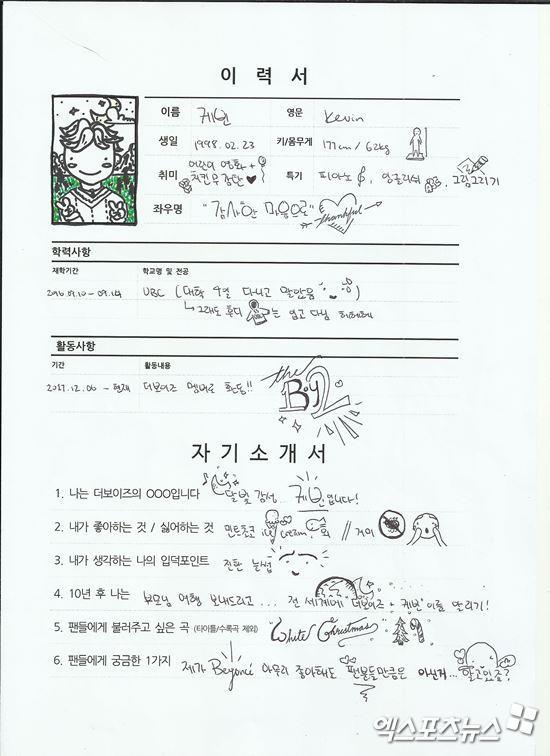 이 력 서
이름 케빈 영문 Kevin
생일 1998. 02. 23 키/몸무게 177cm / 62kg
취미 어린이 영화 + 치킨무 강탄 특기 피아노, 잉글리쉬, 그림그리기
좌우명 "감사한 마음으로" thankful
학력사항
재학기간 학교명 및 전공
2016.09.10 - 09.14 UBC (대학 4일 다니고 말았음
그래도 후디 는 입고 다님 헤헤헤
활동사항
기간 활동내용
2017.12.06 - 현재 더보이즈 멤버로 활동!! the BOYZ
자 기 소 개 서
1. 나는 더보이즈의 OOO입니다 달빛 감성... 케빈입니다!
2. 내가 좋아하는 것 / 싫어하는 것 민트초코 ice cream, 회 // 거미
3. 내가 생각하는 나의 입덕포인트 진한 눈썹
4. 10년 후 나는 부모님 여행 보내드리고... 전 세계에 더보이즈 + 케빈 이름 알리기!
5. 팬들에게 불러주고 싶은 곡 (타이틀/수록곡 제외) White Christmas
6. 팬들에게 궁금한 1가지 제가 Beyoncé 아무리 좋아해도 팬분들만큼은 아닌거... 알고있죠?
엑스포츠뉴스